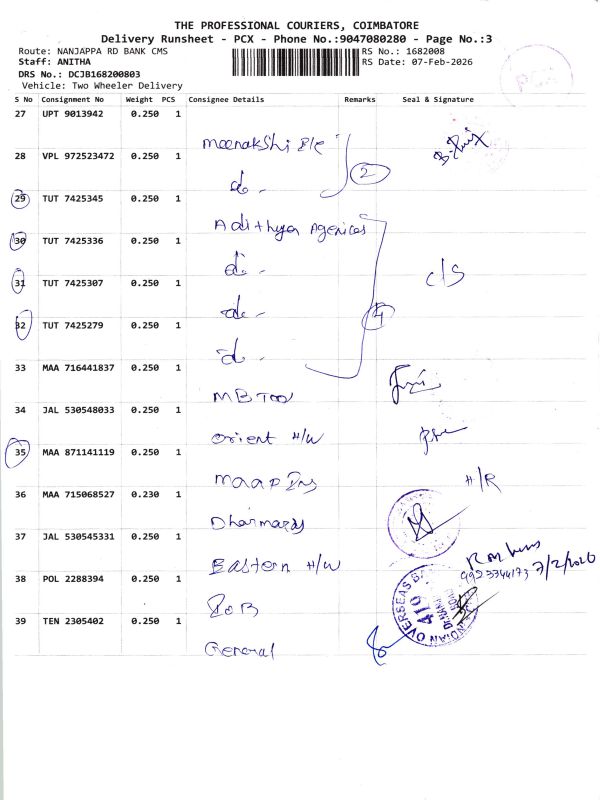 THE PROFESSIONAL COURIERS, COIMBATORE
Delivery Runsheet - PCX - Phone No.:9047080280 - Page No.:3
Route: NANJAPPA RD BANK CMS
RS No.: 1682008
Staff: ANITHA
RS Date: 07-Feb-2026
DRS No.: DCJB168200803
Vehicle: Two Wheeler Delivery
PCX
S No Consignment No Weight PCS Consignee Details Remarks Seal & Signature
27 UPT 9013942 0.250 1
Meenakshi Ele
28 VPL 972523472 0.250 1
do - 2
29 TUT 7425345 0.250 1
Adithya Agencies
30 TUT 7425336 0.250 1
do -
31 TUT 7425307 0.250 1 c/s
do -
32 TUT 7425279 0.250 1 4
do -
33 MAA 716441837 0.250 1
MB Tool
34 JAL 530548033 0.250 1
Orient H/W
35 MAA 871141119 0.250 1
H/R
36 MAA 715068527 0.230 1
37 JAL 530545331 0.250 1
Eastern H/W
9952744173 7/2/2026
38 POL 2288394 0.250 1
IOB
INDIAN OVERSEAS BA
410
39 TEN 2305402 0.250 1
General